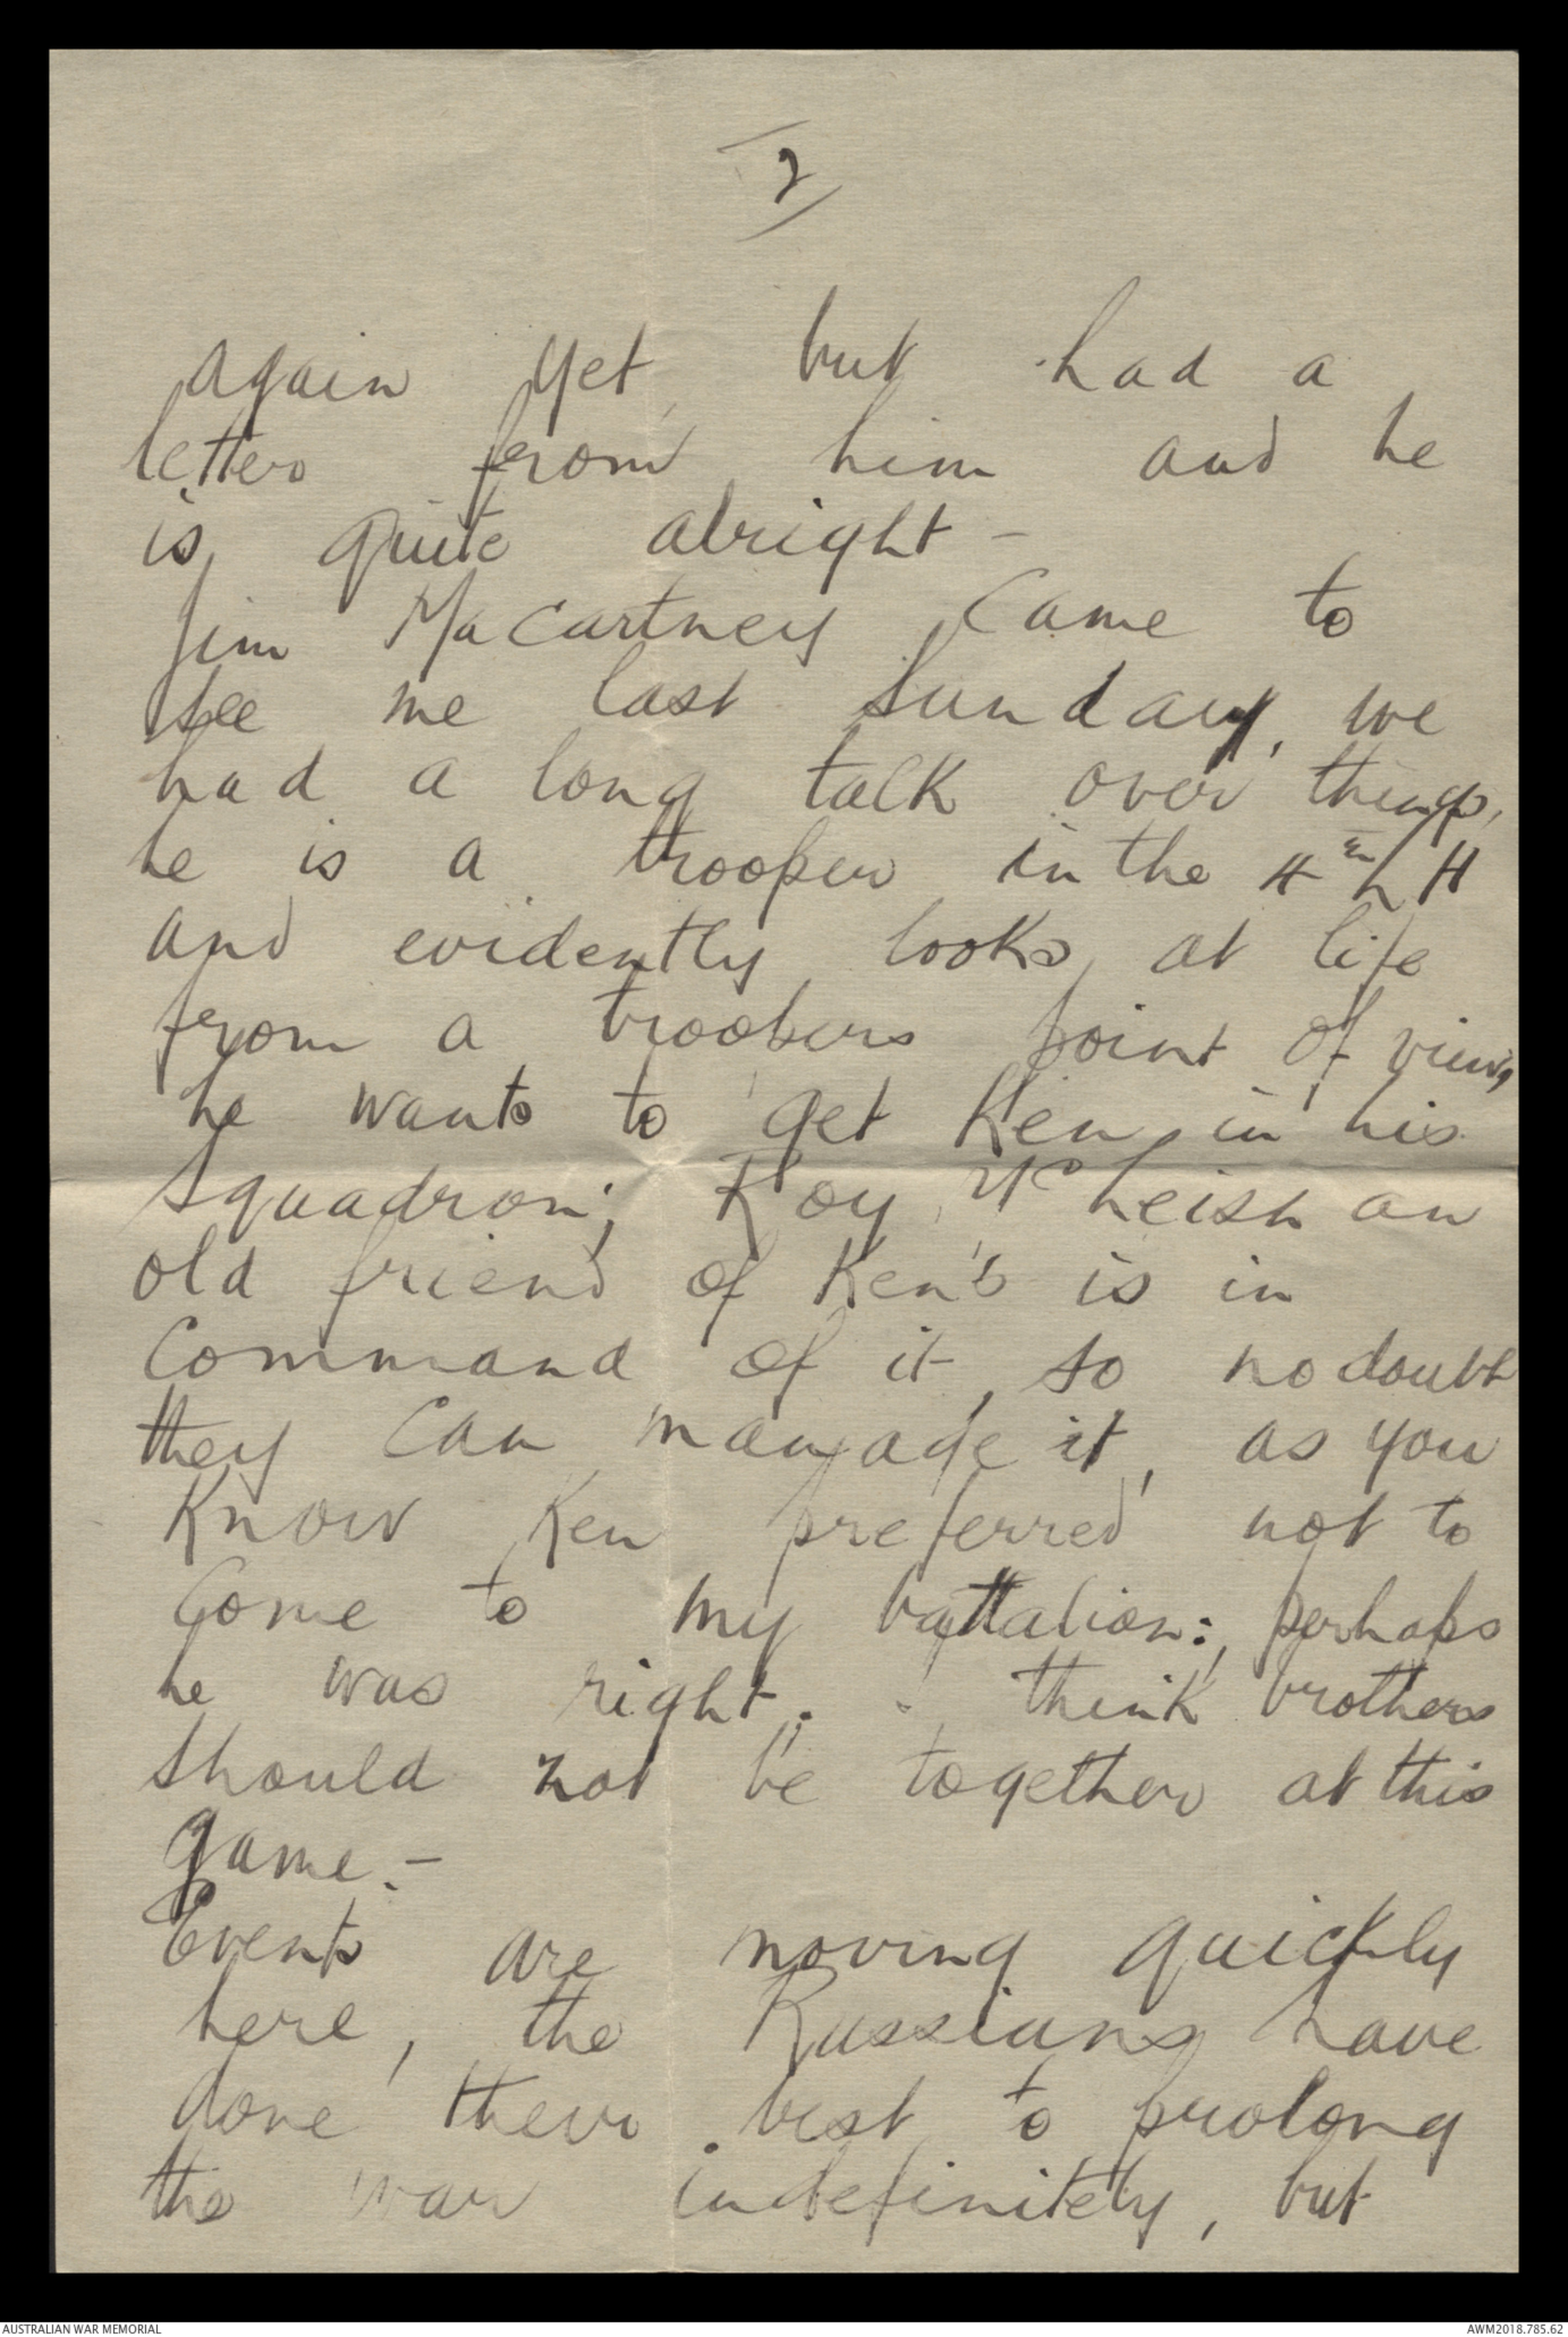 2/
again yet, but had a
letter from him and he
is quite alright -
Jim MaCartney came to
see me last Sunday, we
had a long talk over things,
he is a trooper in the 4th L H
and evidently looks at life
from a troopers point of view,
he wants to get Ken in his
Squadron; Roy McLeish an
old friend of Ken's is in
Command of it, so no doubt
they can manage it, as you
know Ken preferred not to
Come to my battalion:, perhaps
he was right. think brothers
should not be together at this
game. -
Events are moving quickly
here, the Russians have
done their best to prolong
the war indefinitely, but
AUSTRALIAN WAR MEMORIAL
AWM2018.785.62